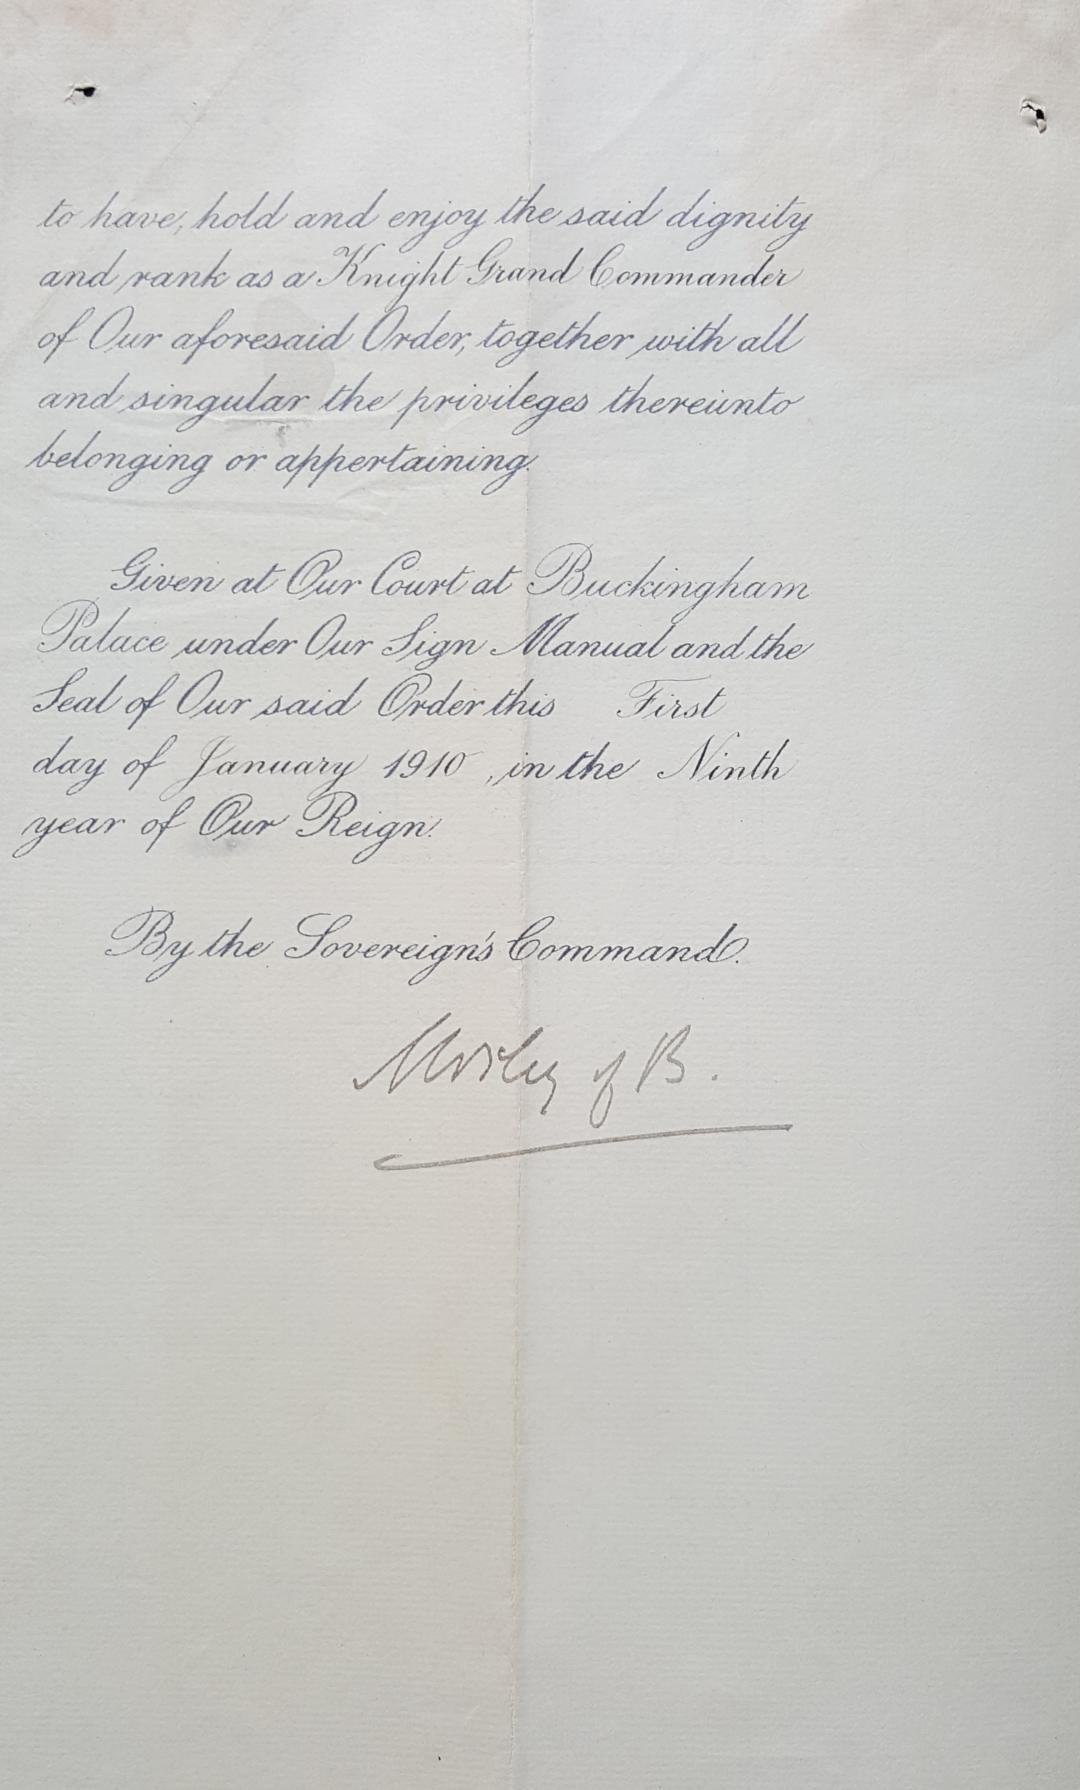 to have, hold and enjoy the said dignity
and rank as a Knight Grand Commander
of Our aforesaid Order, together with all
and singular the privileges thereunto
belonging or appertaining.
Given at Our Court at Buckingham
Palace under Our Sign Manual and the
Seal of Our said Order this First
day of January 1910, in the Ninth
year of Our Reign.
By the Sovereign's Command.
Morley of B.